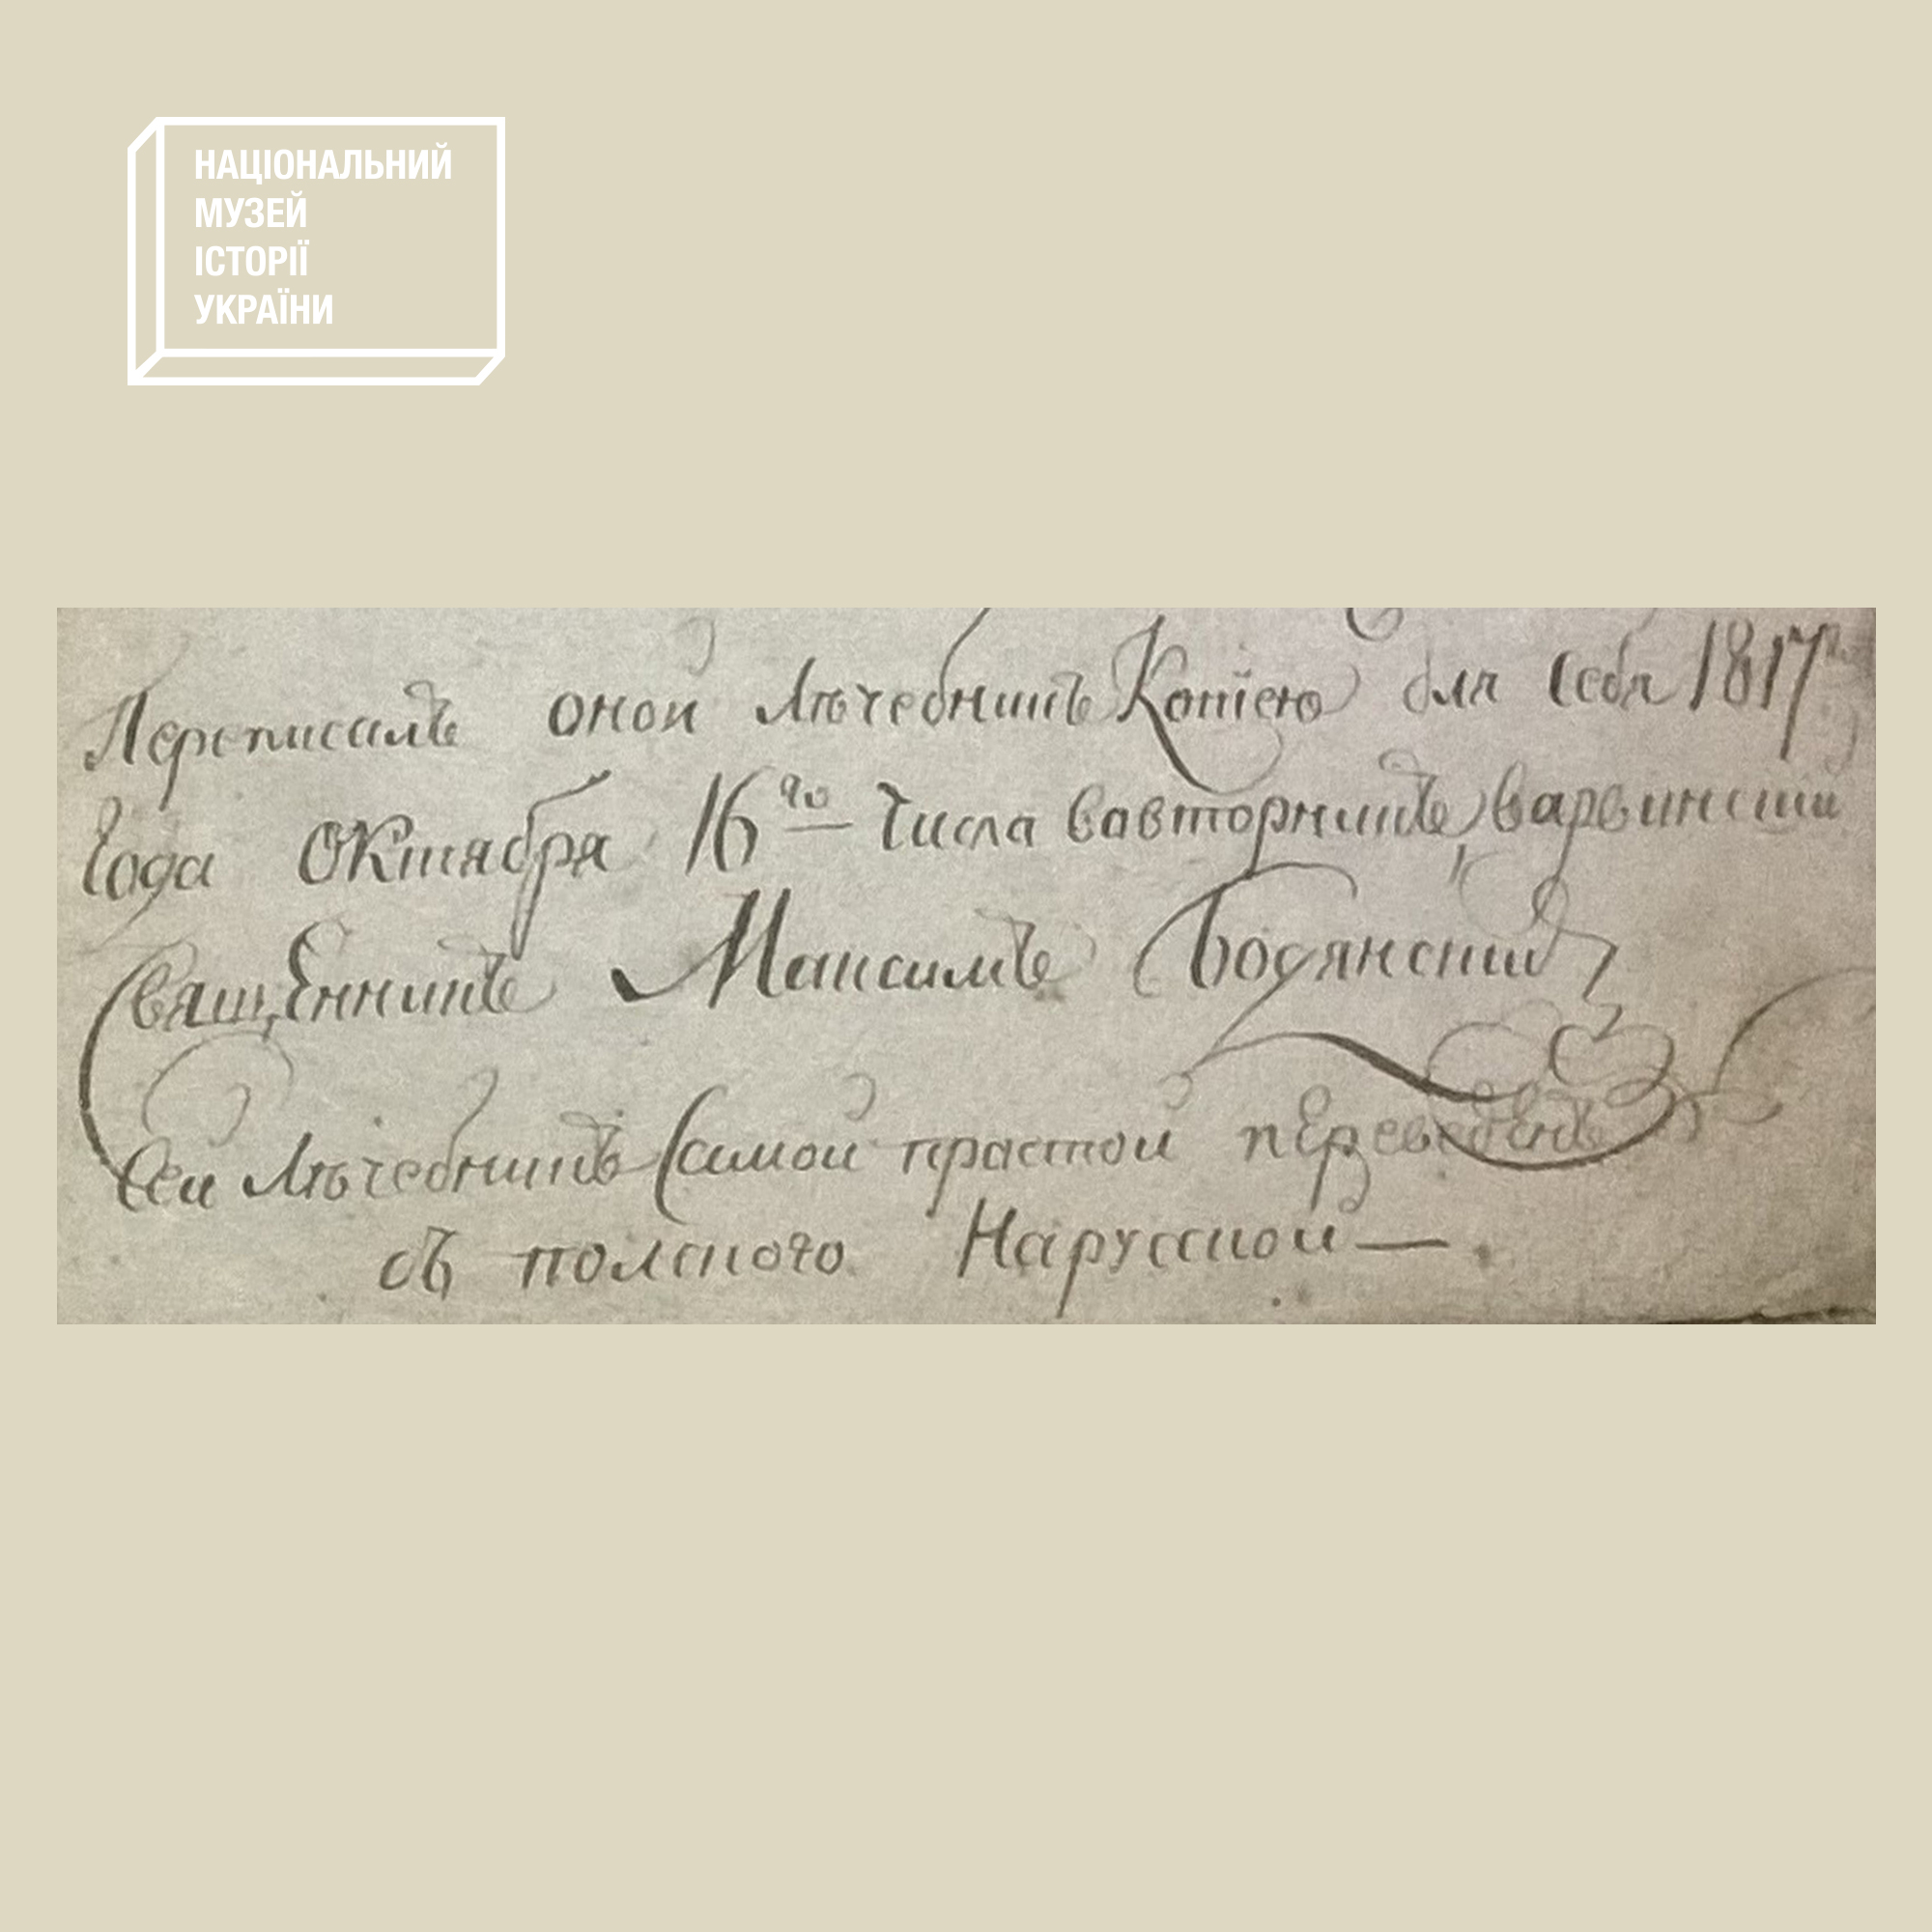 НАЦІОНАЛЬНИЙ
МУЗЕЙ
ІСТОРІЇ
УКРАЇНИ
Переписалъ оной Лѣчебникъ Копїею для себя 1817
года Октября 16го числа вавторникъ варвинский
СвящЕнникъ Максимъ Бодянский
Сеи Лѣчебникъ самой прастой пЕреведЕнъ
съ полского Наруской —